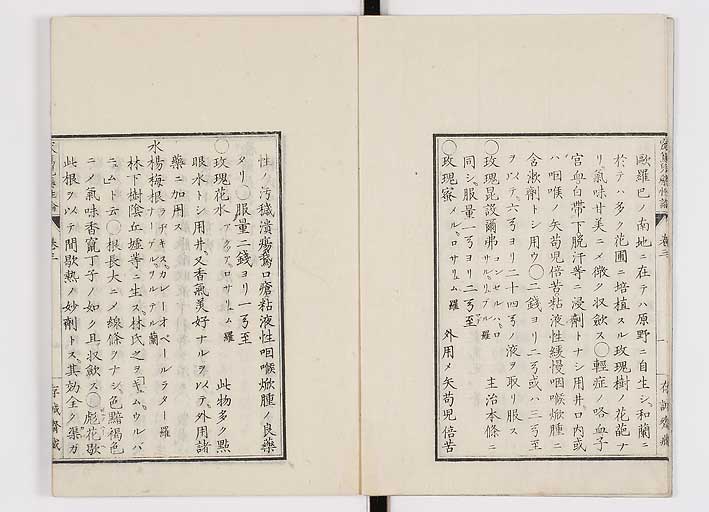 歐羅巴ノ南地ニ在テハ原野ニ自生シ和蘭ニ
於テハ多ク花圃ニ培植スル玫瑰樹ノ花葩ナ
リ氣味甘美ニメ微ク収斂ス○輕症ノ咯血子
宮血白帶下脱汗等ニ浸劑トナシ用井口内或
ハ咽喉ノ矢苟児倍苦粘液性緩慢咽喉焮腫ニ
含漱劑トシ用ウ○二錢ヨリ二弓或ハ三弓至
ヲ以テ六弓ヨリ二十四弓ノ液ヲ取リ服ス
○玫瑰昆設爾弗 コンセルハロサルリブル 羅 主治本條ニ
同シ服量一弓ヨリ二弓至
○玫瑰蜜 メルロサリュム 羅 外用メ矢苟児倍苦
性ノ汚穢潰瘍鵞口瘡粘液性咽喉焮腫ノ良藥
タリ○服量二錢ヨリ一弓至
○玫瑰花水 アクアロサリュム 羅 此物多ク點
眼水トシ用井又香氣美好ナルヲ以テ外用諸
藥ニ加用ス
水楊梅根 ラヂキスカレーオペールラター 羅 ナーゲルウルテル 蘭
林下樹陰丘墟等ニ生ス林氏之ヲゲウムウルバ
ニュムト云○根長大ニメ線條ヲナシ色黯褐色
ニメ氣味香竄丁子ノ如ク且収斂ス○彪花歇
此根ヲ以テ間歇熱ノ妙劑トス其効全ク榘ガ
卷三
存誠齋藏